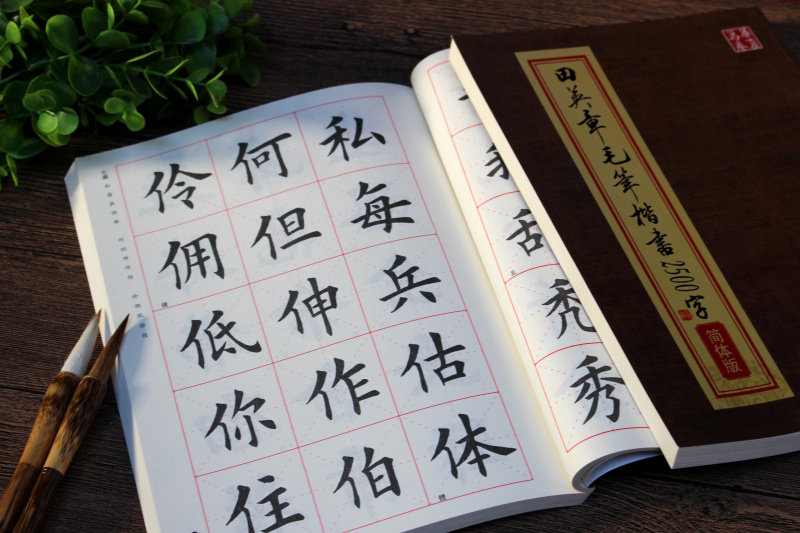 田英章毛筆楷書2500字
简体版
秃秀
私每兵估体
何但伸作伯
伶佣低你住